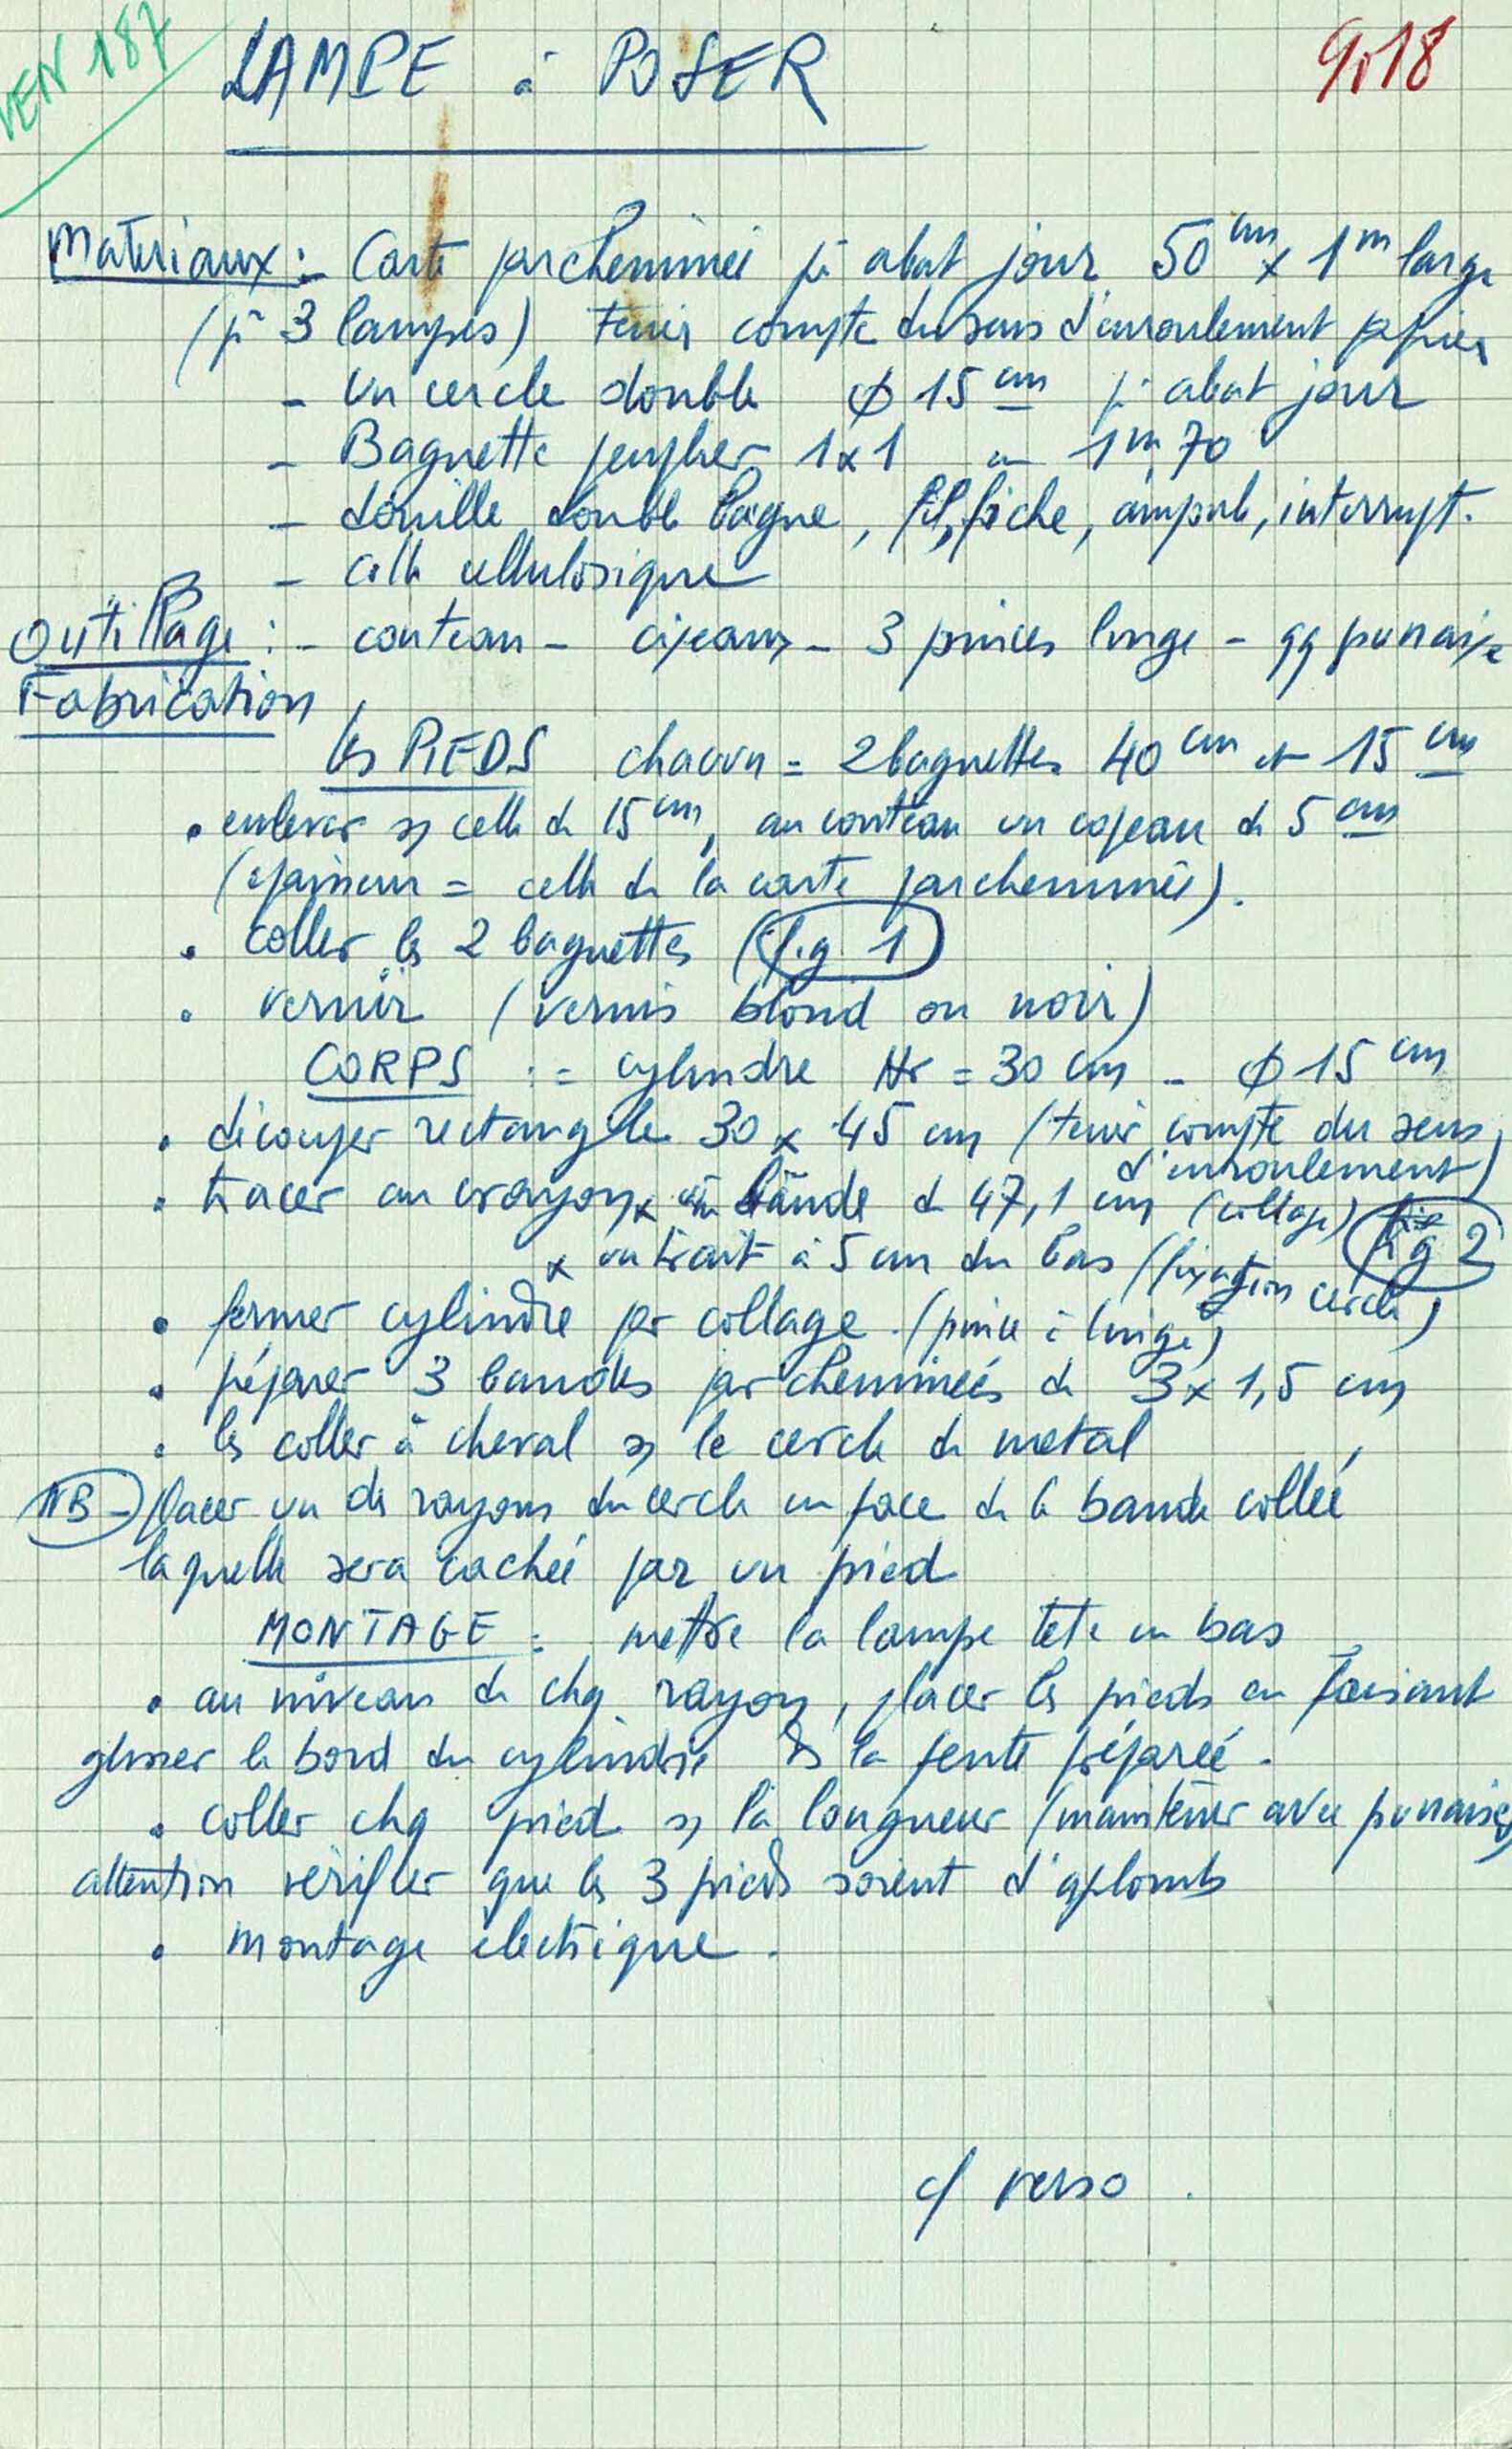 VEN 187
LAMPE à POSER
9.18
Matériaux : - Carte parcheminée pr abat jour 50 cm x 1 m large
(pr 3 lampes) tenir compte du sens d'enroulement papier
- Un cercle double ϕ 15 cm pr abat jour
- Baguette peuplier 1x1 - 1m,70
- douille double bague, fil, fiche, ampoule, interrupt.
- colle cellulosique
Outillage : - couteau - ciseaux - 3 pinces linge - qq punaise
Fabrication
les PIEDS chacun = 2 baguettes 40 cm et 15 cm
• enlever sr celle de 15 cm, au couteau un copeau de 5 cm
(épaisseur = celle de la carte parcheminée).
• coller les 2 baguettes (fig. 1)
• vernir (vernis blond ou noir)
CORPS : = cylindre Htr = 30 cm - ϕ 15 cm
• découper rectangle 30 x 45 cm (tenir compte du sens
d'enroulement)
• tracer au crayon x une bande de 47,1 cm (collage) fig 2
x un trait à 5 cm du bas (fixation cercle)
• fermer cylindre par collage. (pince à linge)
• préparer 3 bandes parcheminées de 3 x 1,5 cm
• les coller à cheval sr le cercle de metal
NB - placer un des rayons du cercle en face de la bande collée
laquelle sera cachée par un pied
MONTAGE : mettre la lampe tete en bas
• au niveau de chq rayon, placer les pieds en faisant
glisser le bord du cylindre ds la fente préparée.
• coller chq pied sr la longueur (maintenir avec punaises)
attention vérifier que les 3 pieds soient d'aplomb
• montage électrique.
c/ verso.